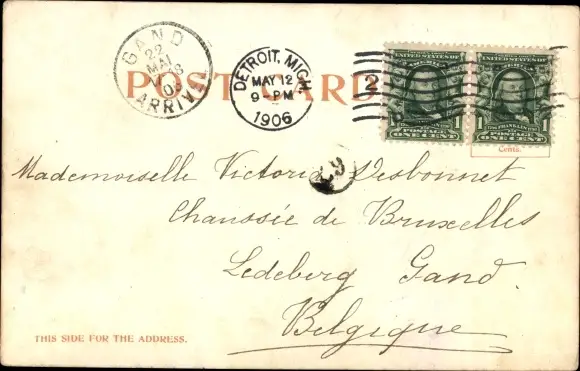 POST CARD
GAND
22
MAI
ARRIVÉE
DETROIT, MICH.
MAY 12
9 PM
1906
2
UNITED STATES OF
AMERICA
POSTAGE
ONE CENT
1 1
UNITED STATES OF
AMERICA
FRANKLIN
POSTAGE
ONE CENT
1 1
Cents.
Mademoiselle Victoria Desbonnet
Chaussée de Bruxelles
Ledeberg Gand.
Belgique
THIS SIDE FOR THE ADDRESS.